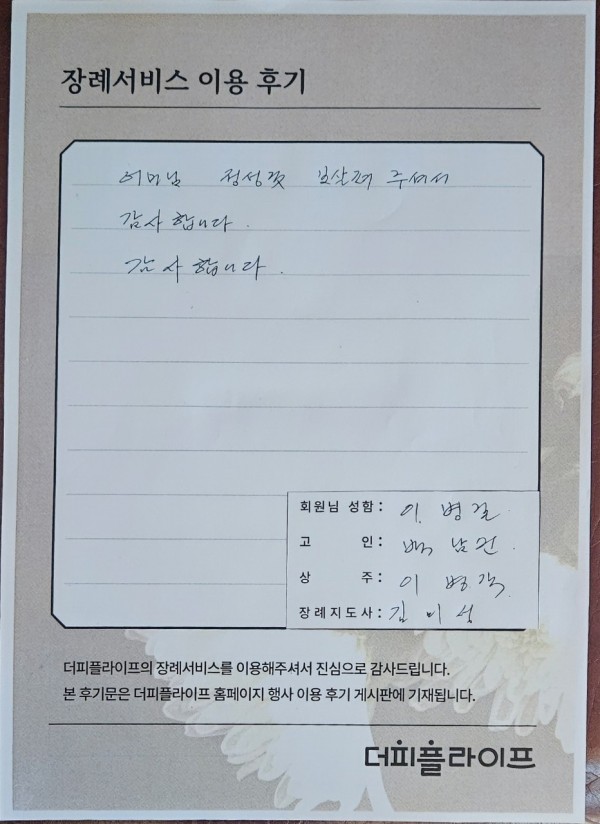 장례서비스 이용 후기
어머님 정성껏 보살펴 주셔서
감사합니다.
감사합니다.
회원님 성함: 이병길
고 인: 백남전
상 주: 이병각
장례지도사: 김미성
더피플라이프의 장례서비스를 이용해주셔서 진심으로 감사드립니다.
본 후기문은 더피플라이프 홈페이지 행사 이용 후기 게시판에 기재됩니다.
더피플라이프